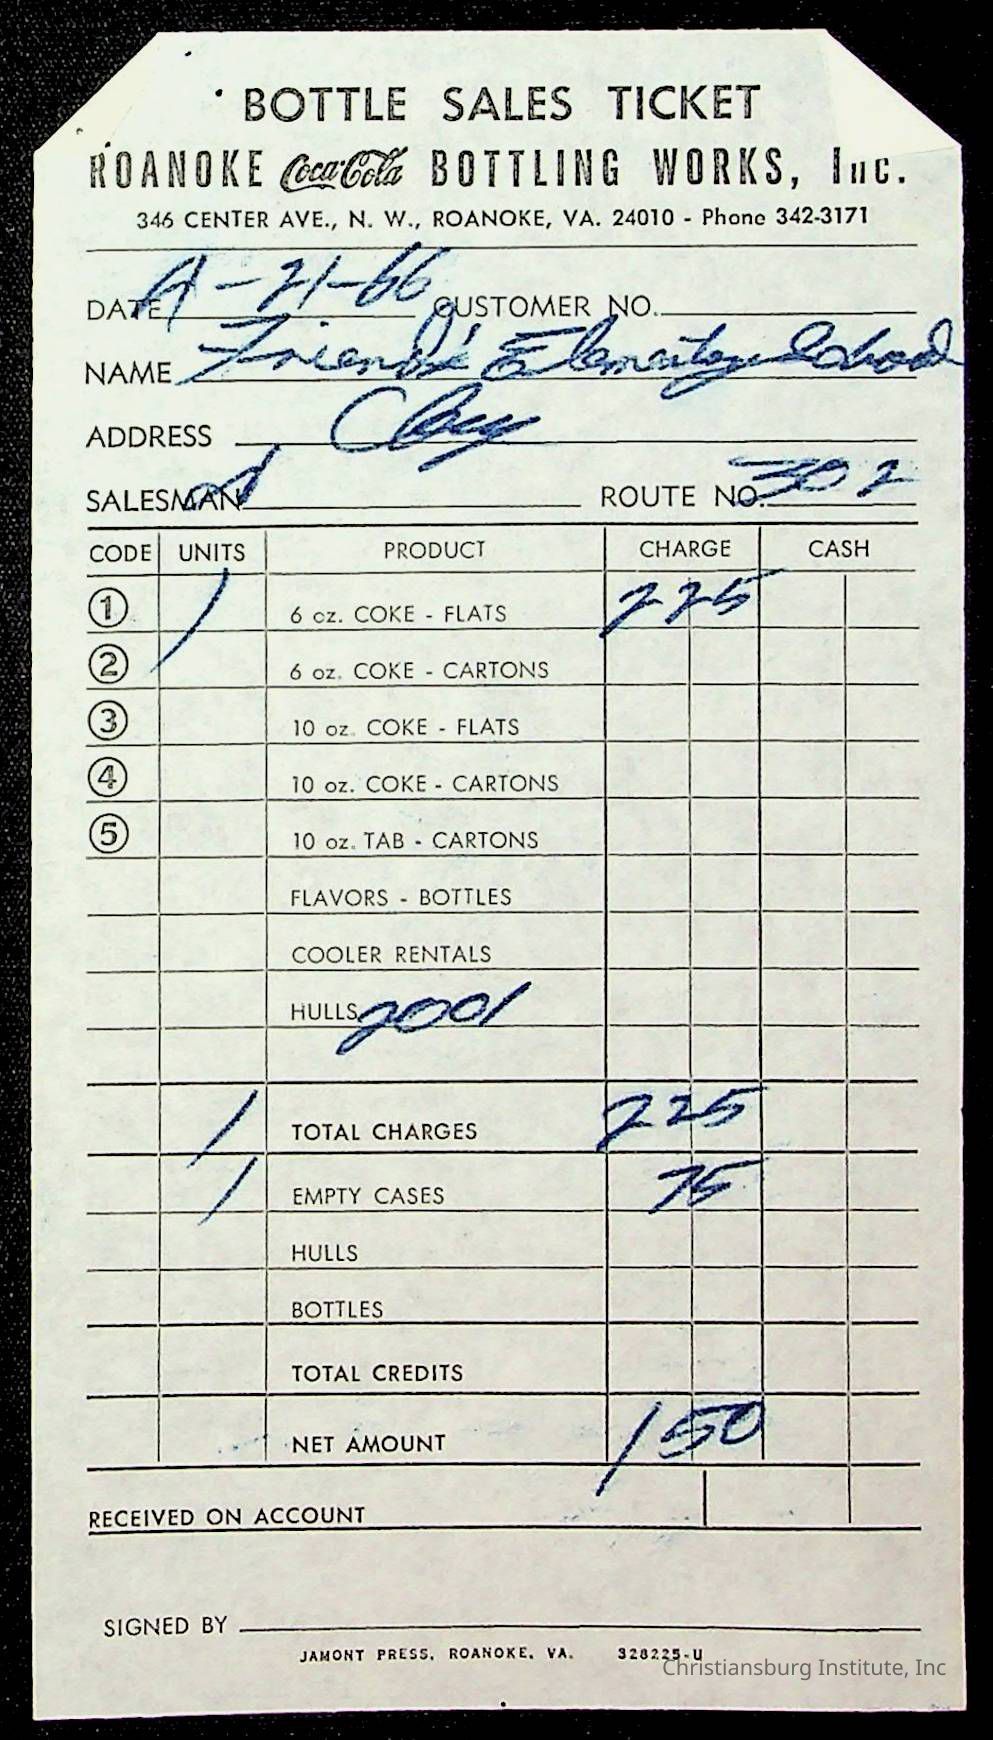 BOTTLE SALES TICKET
ROANOKE Coca-Cola BOTTLING WORKS, Inc.
346 CENTER AVE., N. W., ROANOKE, VA. 24010 - Phone 342-3171
DATE 4-21-66 CUSTOMER NO.
NAME Friends Elementary School
ADDRESS
SALESMAN ROUTE NO. 302
CODE UNITS PRODUCT CHARGE CASH
1 1 6 oz. COKE - FLATS 2 25
2 6 oz. COKE - CARTONS
3 10 oz. COKE - FLATS
4 10 oz. COKE - CARTONS
5 10 oz. TAB - CARTONS
FLAVORS - BOTTLES
COOLER RENTALS
HULLS 2001
1 TOTAL CHARGES 2 25
1 EMPTY CASES 75
HULLS
BOTTLES
TOTAL CREDITS
NET AMOUNT 1 50
RECEIVED ON ACCOUNT
SIGNED BY
JAMONT PRESS, ROANOKE, VA. 328225-U
Christiansburg Institute, Inc